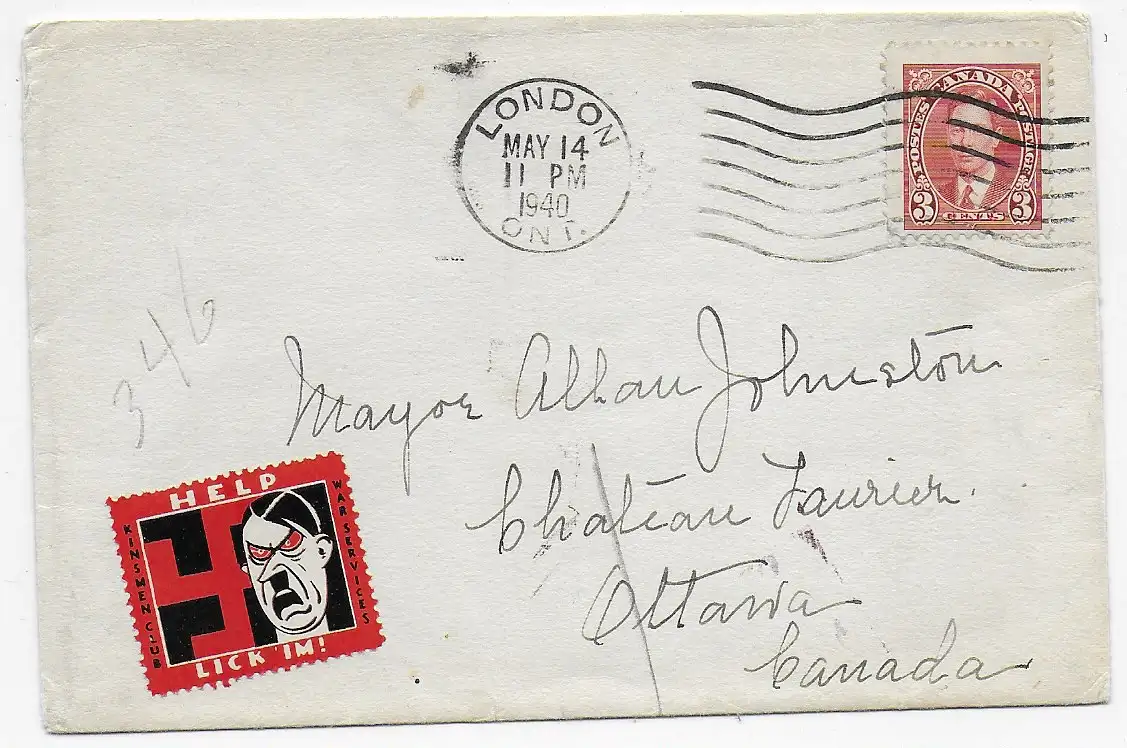 LONDON
MAY 14
11 PM
1940
ONT.
POSTES CANADA POSTAGE
3 CENTS 3
346
Mayor Allan Johnston
Chateau Laurier.
Ottawa
Canada
HELP
KINSMEN CLUB
WAR SERVICES
LICK 'IM!